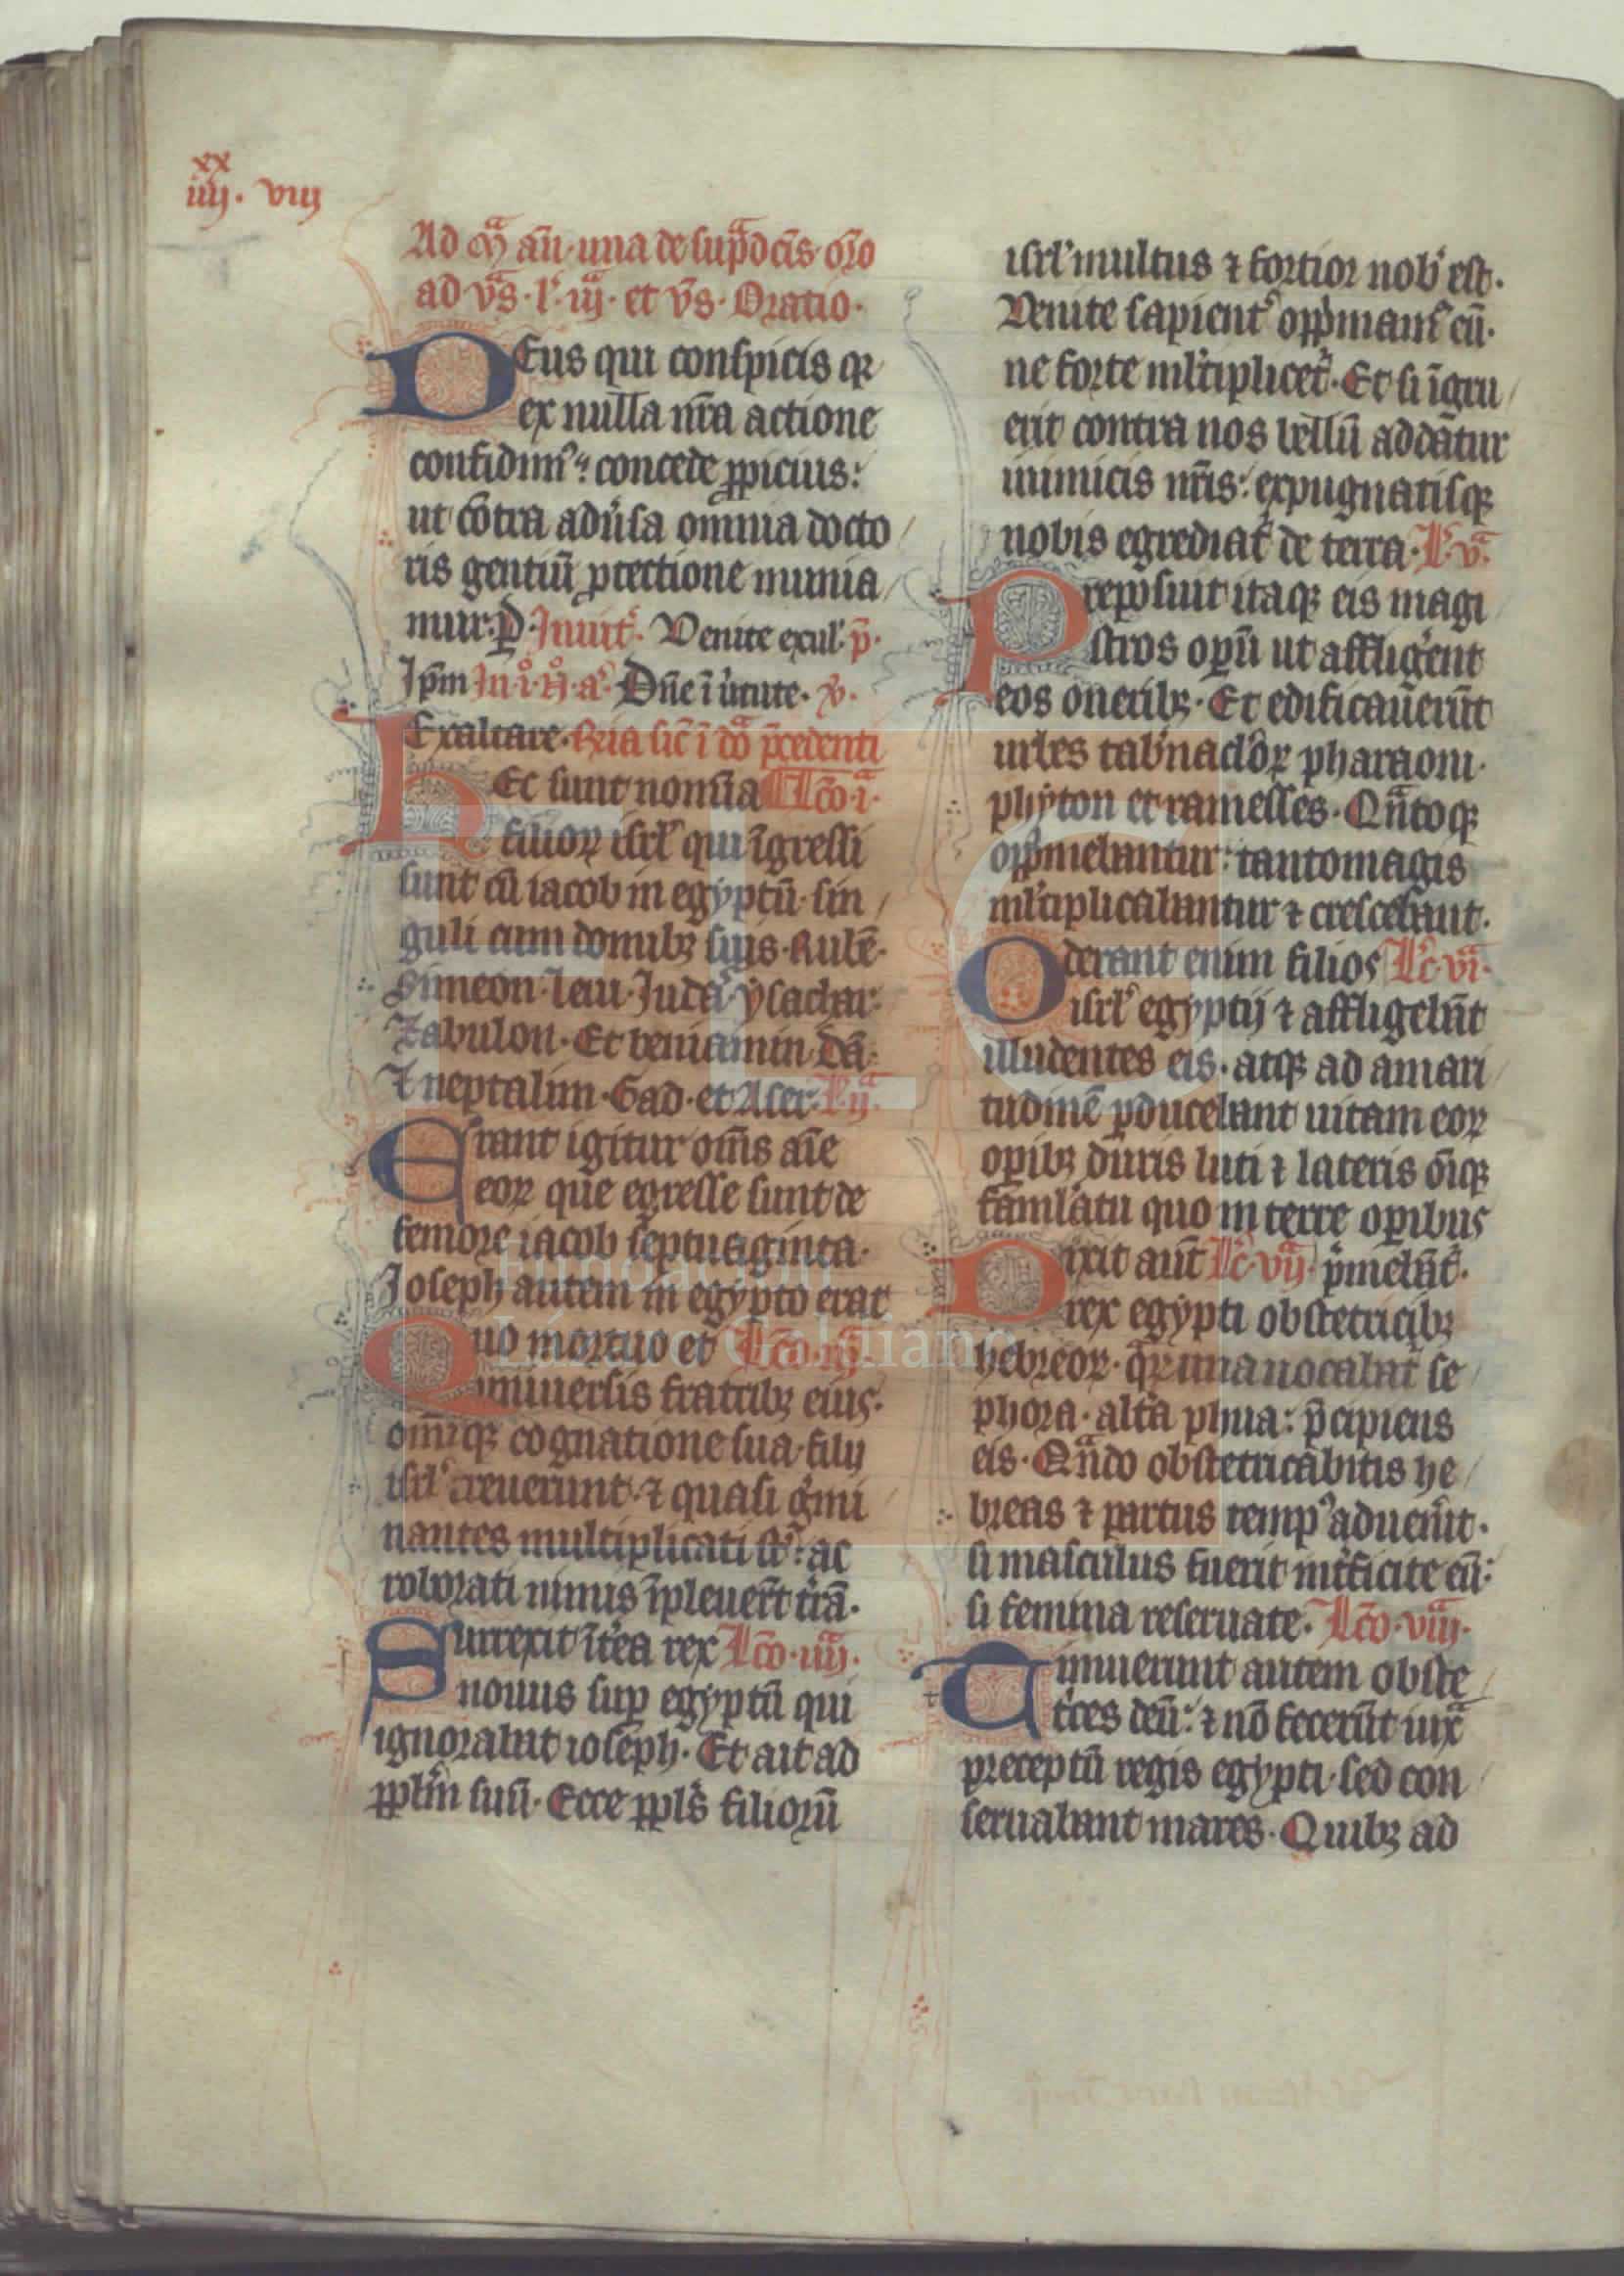 xx
iiij. viij
Ad m̄ᵃ añ. una de sup̃ᵃdc̄is. or̃o
ad v̄s. lʳ iijᵃ. et v̄s. Oratio.
DEus qui conspicis qꝛ
ex nulla nr̃a actione
confidimꝰ: concede ꝓpicius:
ut cõtra adũsa omnia docto
ris gentiũ ꝓtectione munia
mur. ꝑ. Inuit̾. Venite exul̾. p̃.
Ip̃m Dñe ĩ ũtute. ꝟ.
Exaltare. fr̃ia sic̃ ĩ dõᵃ p̃cedenti
HEc sunt nomĩa lc̃o. iᵃ.
filioꝝ isrl̾ qui ĩgressi
sunt cũ iacob in egyptũ. sin
guli cum domibꝫ suis. Rubẽ.
Simeon. leui. Iudas. ysachar.
Zabulon. Et beniamin. Dã.
⁊ neptalim. Gad. et Aser. l̾. ijᵃ.
Erant igitur om̃s aĩe
eoꝝ que egresse sunt de
femore iacob septuaginta.
Ioseph autem in egypto erat
Quo mortuo et lc̃o. iijᵃ
uniuersis fratribꝫ eius.
om̃iqꝫ cognatione sua. filij
isrl̾ creuerunt. ⁊ quasi g̾mi
nantes multiplicati st̾: ac
roborati nimis ĩpleuer̃t t̾rã.
Surrexit ĩt̾ea rex lc̃o. iiijᵃ.
nouus suꝑ egyptũ qui
ignorabat ioseph. Et ait ad
ppl̃m suũ. Ecce ppl̾s filiorũ
isrl̾ multus ⁊ fortior nob̾ est.
Venite sapient̾ opp̾mamꝰ eũ.
ne forte ml̾tiplicet̾. Et si ĩgru
erit contra nos bellũ addãtur
inimicis nr̃is: expugnatisqꝫ
nobis egrediat̾ de terra. l̾. vᵃ.
Preposuit itaqꝫ eis magi
stros oꝑũ ut affligẽnt
eos oneribꝫ. Et edificauerũt
urbes tab̾nacl̾oꝝ pharaoni.
phyton et ramesses. Qñᵃtoqꝫ
opp̾mebantur: tantomagis
ml̾tiplicabantur ⁊ crescebant.
Oderant enim filios l̾c. viᵃ.
isrl̾ egyptij ⁊ affligebãt
illudentes eis. atqꝫ ad amari
tudinẽ ꝑducebant uitam eoꝝ
oꝑibꝫ duris luti ⁊ lateris oĩqꝫ
faml̾atu quo in terre oꝑibus
Dixit aũt l̾c. vijᵃ. p̾mebãt̾.
rex egypti obstetricibꝫ
hebreoꝝ. qᵃꝝ una uocabat̾ se
phora. alt̾a phua: p̃cipiens
eis. Qñᵃdo obstetricabitis he
breas ⁊ partus tempꝰ aduen̾it.
si masculus fuerit int̾ficite eũ:
si femina reseruate. lc̃o. viijᵃ.
Timuerunt autem obste
t̾ces deũ: ⁊ nõ fecerũt iuxᵃ
preceptũ regis egypti. sed con
seruabant mares. Quibꝫ ad
Fundación
Lázaro Galdiano